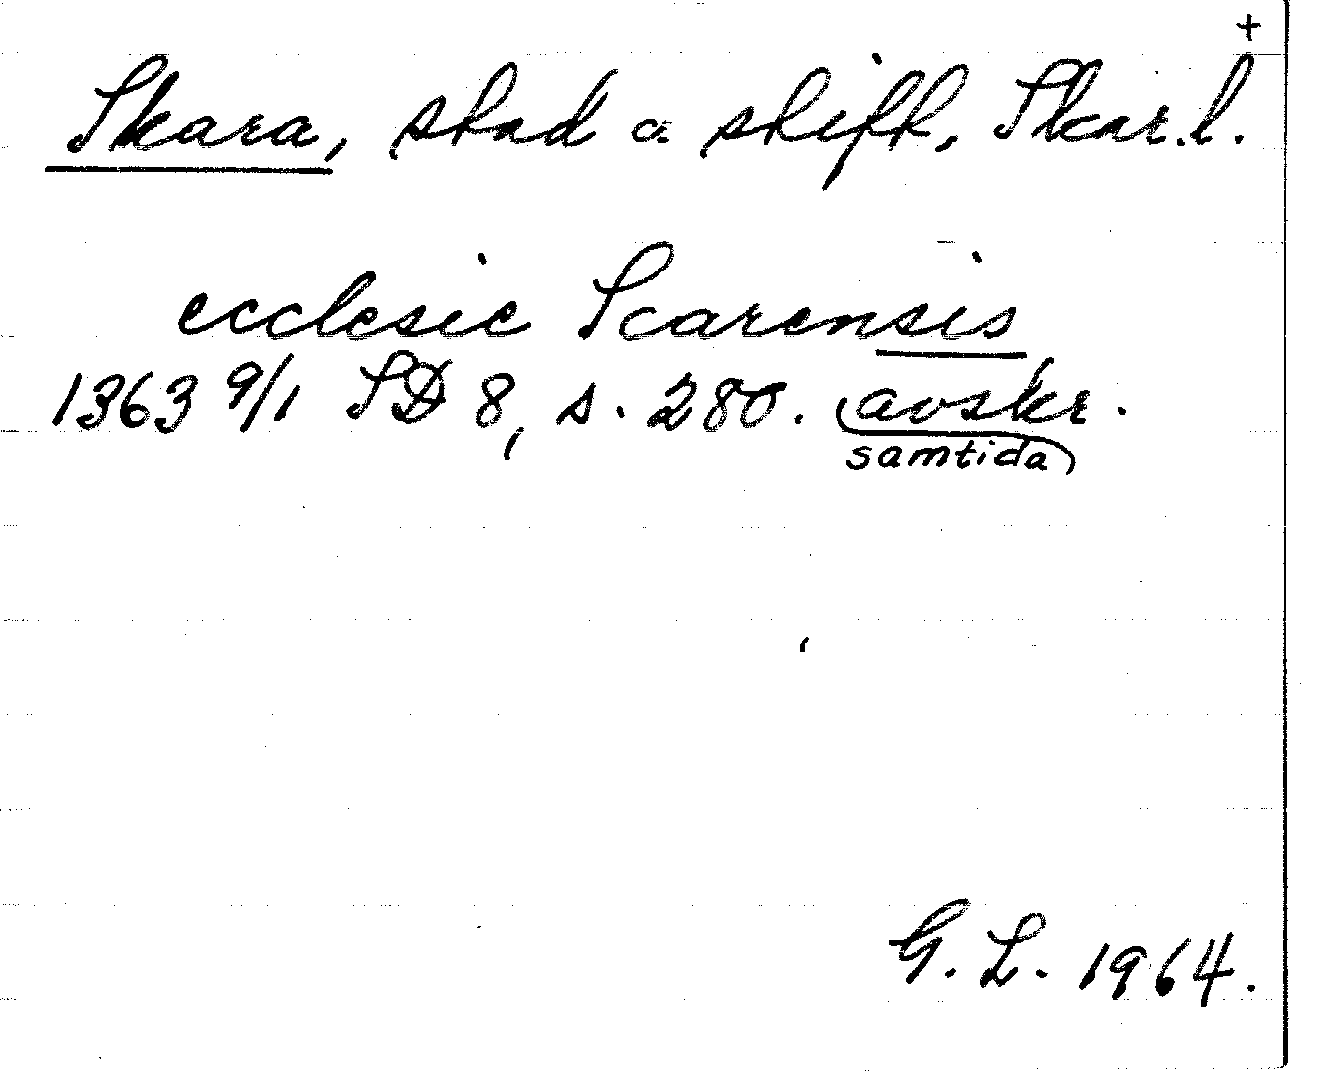 +
Skara, stad o stift, Skar.l.
ecclesie Scarensis
1363 9/1 SD 8, s. 280. avskr.
samtida
G. L. 1964.